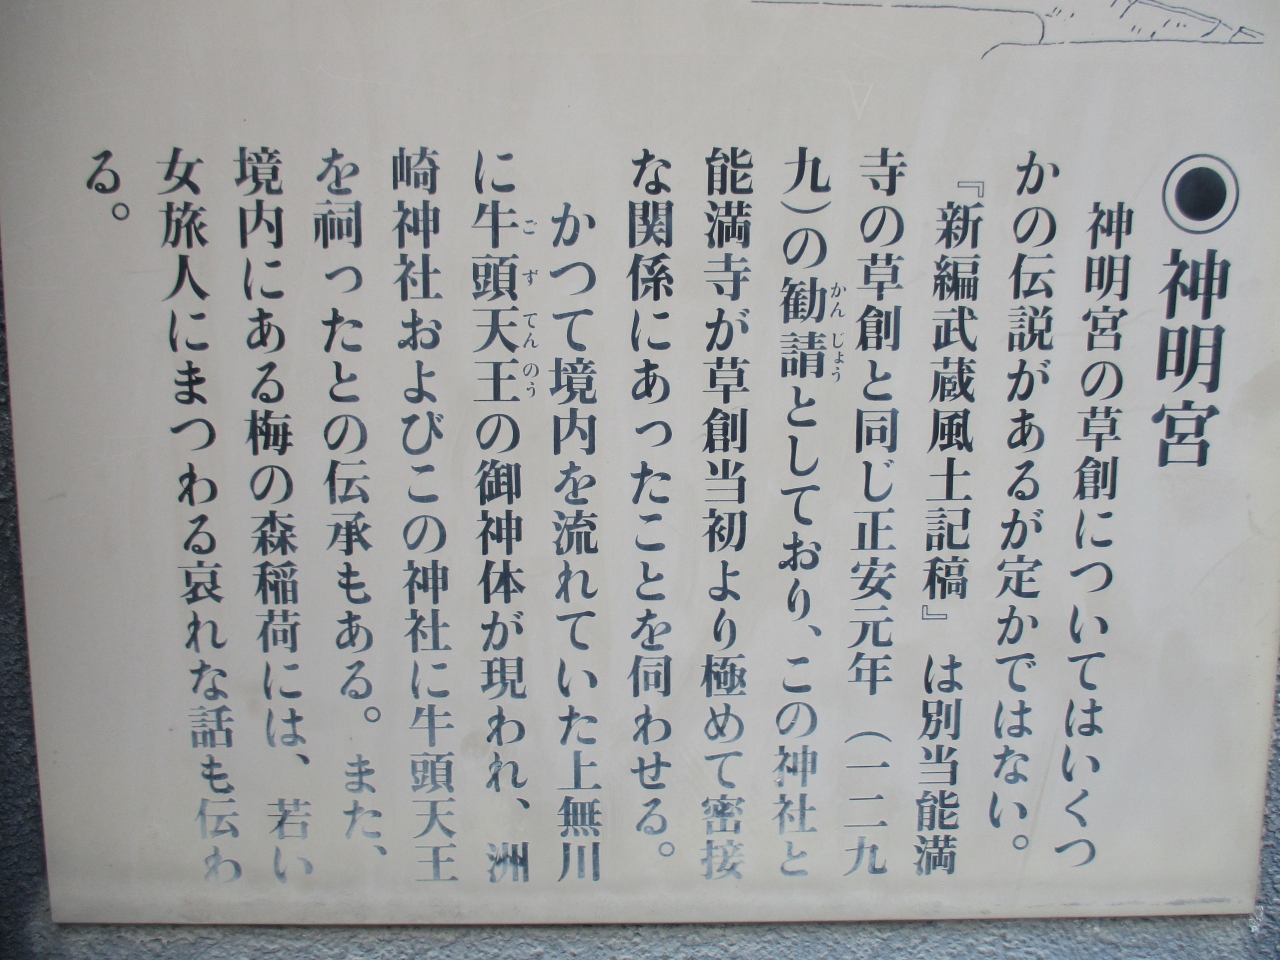 ◉神明宮
神明宮の草創についてはいくつ
かの伝説があるが定かではない。
『新編武蔵風土記稿』は別当能満
寺の草創と同じ正安元年（一二九
九）の勧請としており、この神社と
かんじょう
能満寺が草創当初より極めて密接
な関係にあったことを伺わせる。
かつて境内を流れていた上無川
に牛頭天王の御神体が現われ、洲
ごずてんのう
崎神社およびこの神社に牛頭天王
を祠ったとの伝承もある。また、
境内にある梅の森稲荷には、若い
女旅人にまつわる哀れな話も伝わ
る。